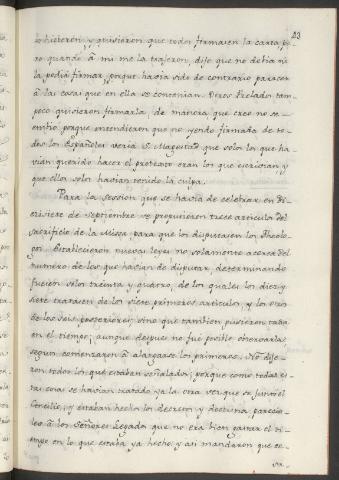 23
lo hicieron, y quisieron que todos firmasen la carta, pe-
ro quando â mi me la trajeron, dije que no debia ni
la podia firmar, porque havia sido de contrario parecer
â las cosas que en ella se contenian. Otros Prelados tam-
poco quisieron firmarla, de manera que creo no se
embio, porque entendieron que no yendo firmada de to-
dos los Españoles veria S. Magestad que solo los que ha-
vian querido hacer el protexto eran los que escrivian, y
que ellos solos havian tenido la culpa.
Para la Session que se havia de celebrar en Di-
eziviete de Septiembre se propusieron trece articulos del
Sacrificio de la Missa, para que los disputasen los Theolo-
gos. Establecieron nuevas leyes no solamente acerca del
numero de los que havian de disputar, determinando
fuesen solos treinta y quatro, de los quales los diez y
siete tratasen de los siete primeros articulos, y los otros
de los seis posteriores; sino que tambien pusieron tasa
en el tiempo; aunque despues no fue posible observarla,
segun comenzaron â alargarse los primeros. No dije-
ron todos los que estaban señalados; porque como todas es-
tas cosas se havian tratado ya la otra vez que se juntó el
Concilio, y estaban hechos los decretos y doctrina, parecio-
les â los Señores Legados que no era bien gastar el ti-
empo en lo que estaba ya hecho; y asi mandaron que ce-